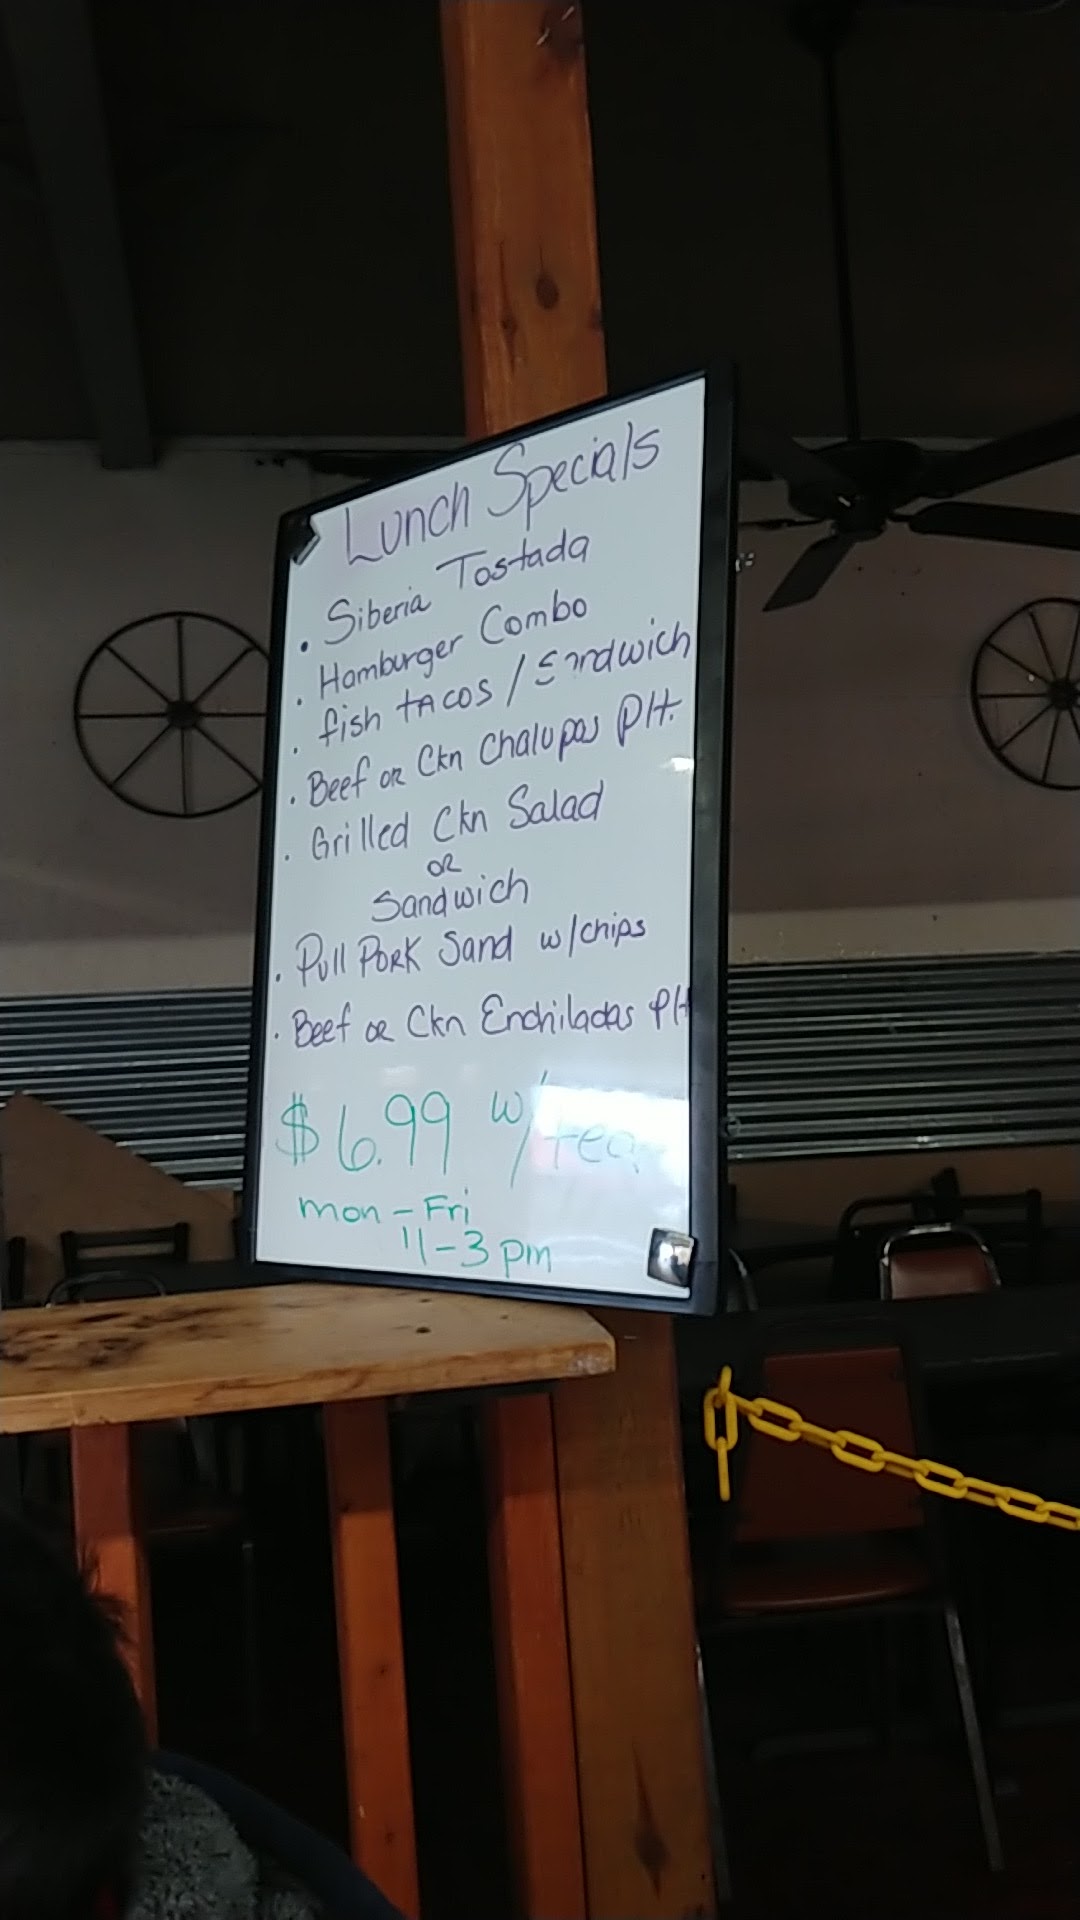 Lunch Specials
. Siberia Tostada
. Hamburger Combo
. fish tacos / Sandwich
. Beef or Ckn Chalupas Plt.
. Grilled Ckn Salad
or
Sandwich
. Pull Pork Sand w/chips
. Beef or Ckn Enchiladas Plt
$6.99 w/tea
mon - Fri
11-3 pm